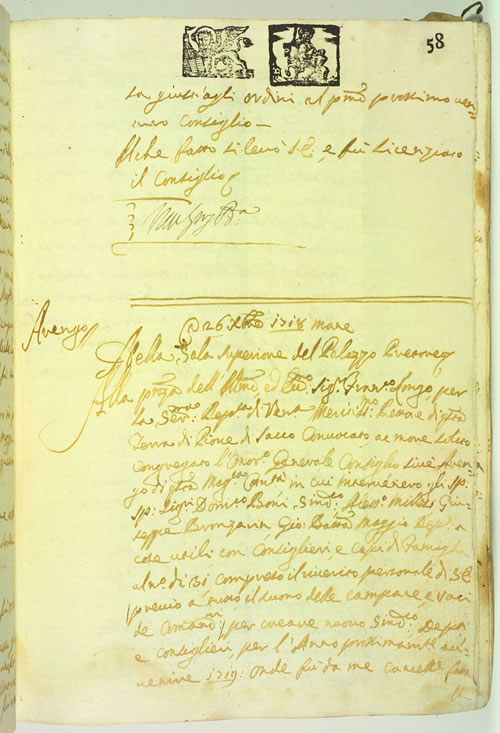 58
ta giust'agli ordini al pmo prossimo ven
turo Consiglio
Il che fatto si levò S. E. e fù licenziato
il Consiglio
Avengo
26 1718 mane
Nella Sala superiore del Palazzo Pretoreo
Alla pnza dell' Illmo ed Ecc.mo Sigr Franco Longo, per
la Serma Repca di Venza Pode di qta
Terra di Piove di Sacco Convocato, ac more solito
congregato l'Onor. Generale Consiglio sive Aven
go di qta Magca in cui intervenero gli sp.
sp. Sigri Domco Boni, Sindco Alesso Giu
seppe Bronzaria Gio: Batta Maggio Depti a
cose utili con Consiglieri, e Capi di Famiglia
al no di 31 compreso il riverito personale di S. E.
previo il suono delle campane, e voci
de Comandri, per creare nuovo Sindco, Depti
e Consiglieri, per l'Anno prossimamte au
venire 1719: Onde fù da me Cancellre